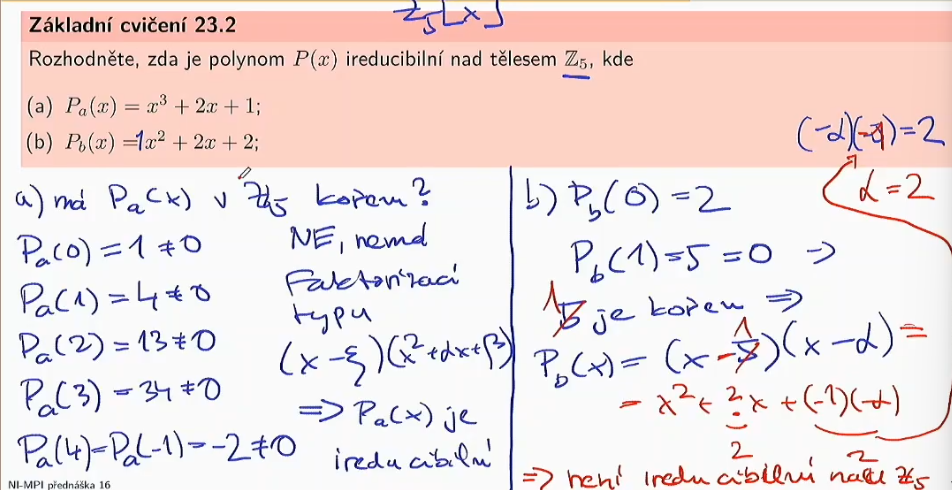 ℤ₅[x]
Základní cvičení 23.2
Rozhodněte, zda je polynom P(x) ireducibilní nad tělesem ℤ₅, kde
(a) Pₐ(x) = x³ + 2x + 1;
(b) P_b(x) = 1x² + 2x + 2;
(-α)(-1) = 2
α = 2
a) má Pₐ(x) v ℤ₅ kořen?
Pₐ(0) = 1 ≠ 0
Pₐ(1) = 4 ≠ 0
Pₐ(2) = 13 ≠ 0
Pₐ(3) = 34 ≠ 0
Pₐ(4) = Pₐ(-1) = -2 ≠ 0
NE, nemá
Faktorizaci
typu
(x - ξ)(x² + αx + β)
=> Pₐ(x) je
ireducibilní
b) P_b(0) = 2
P_b(1) = 5 = 0 =>
1 je kořen =>
P_b(x) = (x - 1)(x - α) =
= x² + ?x + (-1)(-α)
2 2
=> není ireducibilní nad ℤ₅
NI-MPI přednáška 16